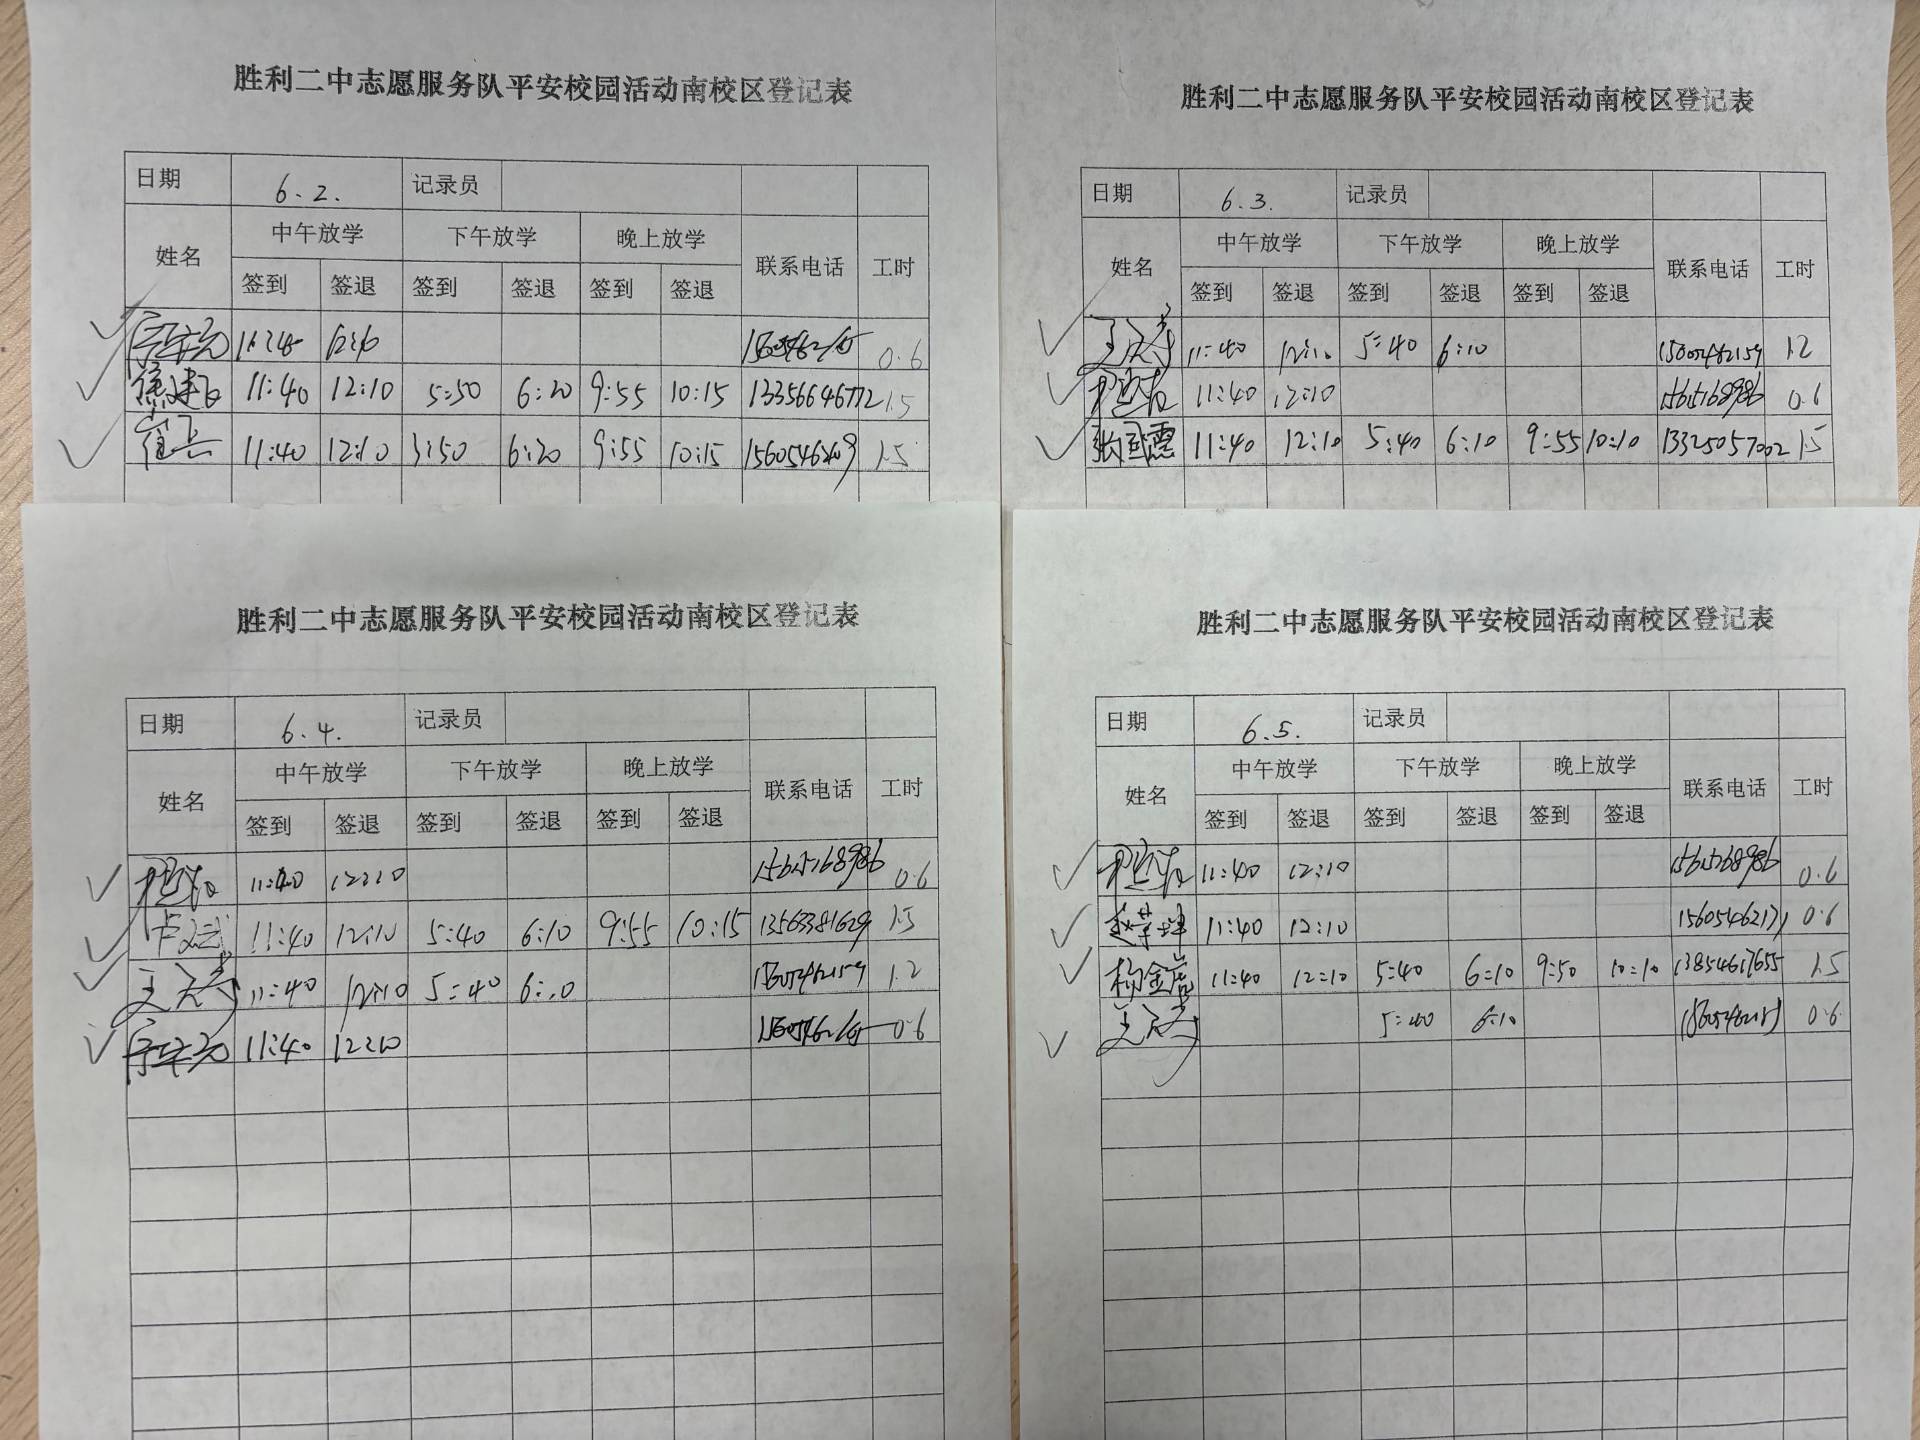 胜利二中志愿服务队平安校园活动南校区登记表
日期 6.2. 记录员
姓名 中午放学 下午放学 晚上放学 联系电话 工时
签到 签退 签到 签退 签到 签退
0.6
11:40 12:10 5:50 6:20 9:55 10:15 13356646772 1.5
崔兵 11:40 12:10 5:50 6:20 9:55 10:15 1.5
胜利二中志愿服务队平安校园活动南校区登记表
日期 6.3. 记录员
姓名 中午放学 下午放学 晚上放学 联系电话 工时
签到 签退 签到 签退 签到 签退
11:40 12:10 5:40 6:10 1.2
11:40 12:10 15615168986 0.6
张国震 11:40 12:10 5:40 6:10 9:55 10:10 13325057002 1.5
胜利二中志愿服务队平安校园活动南校区登记表
日期 6.4. 记录员
姓名 中午放学 下午放学 晚上放学 联系电话 工时
签到 签退 签到 签退 签到 签退
11:40 12:10 15615168986 0.6
11:40 12:10 5:40 6:10 9:55 10:15 13563381629 1.5
11:40 12:10 5:40 6:10 1.2
11:40 12:10 0.6
胜利二中志愿服务队平安校园活动南校区登记表
日期 6.5. 记录员
姓名 中午放学 下午放学 晚上放学 联系电话 工时
签到 签退 签到 签退 签到 签退
11:40 12:10 15615168986 0.6
11:40 12:10 15605462171 0.6
杨金虎 11:40 12:10 5:40 6:10 9:50 10:10 13854617655 1.5
5:40 6:10 0.6